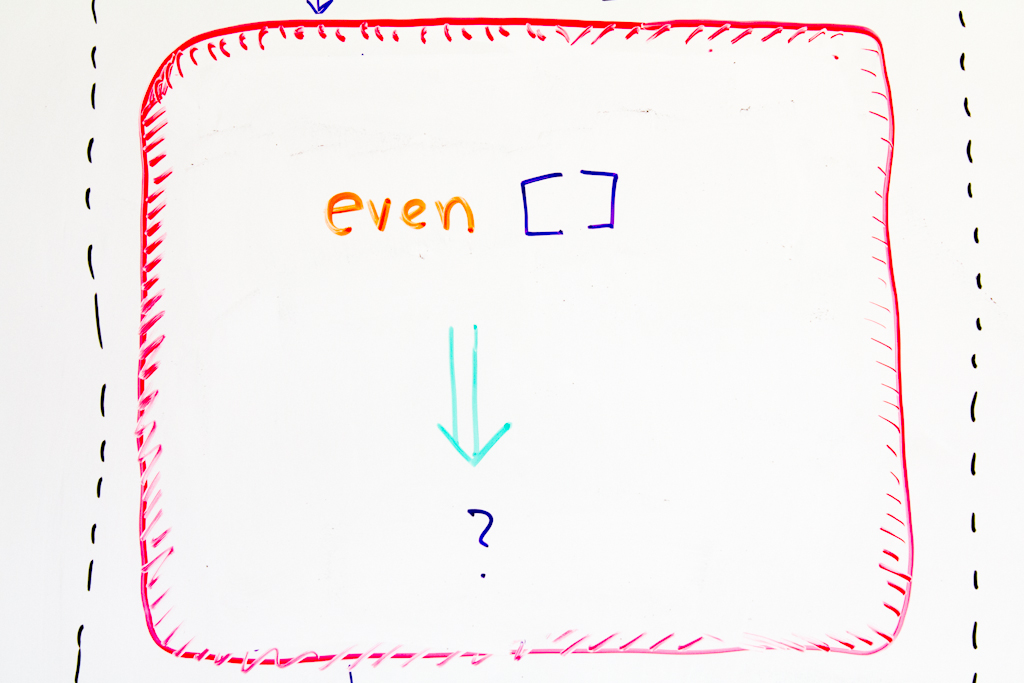 even []
?